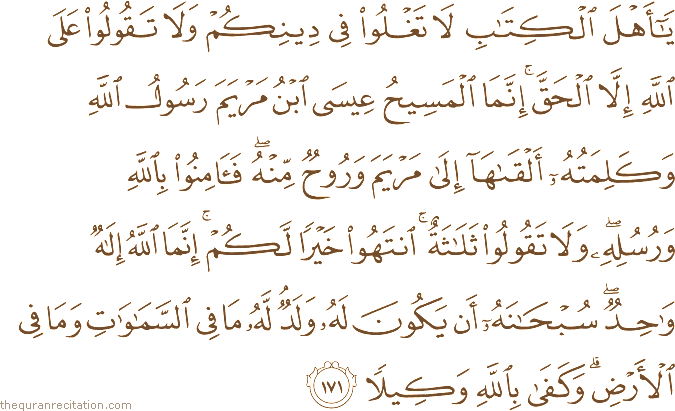 يَـٰٓأَهۡلَ ٱلۡكِتَـٰبِ لَا تَغۡلُواْ فِي دِينِكُمۡ وَلَا تَقُولُواْ عَلَى
ٱللَّهِ إِلَّا ٱلۡحَقَّۚ إِنَّمَا ٱلۡمَسِيحُ عِيسَى ٱبۡنُ مَرۡيَمَ رَسُولُ ٱللَّهِ
وَكَلِمَتُهُۥٓ أَلۡقَىٰهَآ إِلَىٰ مَرۡيَمَ وَرُوحٞ مِّنۡهُۖ فَـَٔامِنُواْ بِٱللَّهِ
وَرُسُلِهِۦۖ وَلَا تَقُولُواْ ثَلَـٰثَةٌۚ ٱنتَهُواْ خَيۡرٗا لَّكُمۡۚ إِنَّمَا ٱللَّهُ إِلَـٰهٞ
وَٰحِدٞۖ سُبۡحَـٰنَهُۥٓ أَن يَكُونَ لَهُۥ وَلَدٞۘ لَّهُۥ مَا فِي ٱلسَّمَـٰوَٰتِ وَمَا فِي
ٱلۡأَرۡضِۗ وَكَفَىٰ بِٱللَّهِ وَكِيلٗا ١٧١
thequranrecitation.com